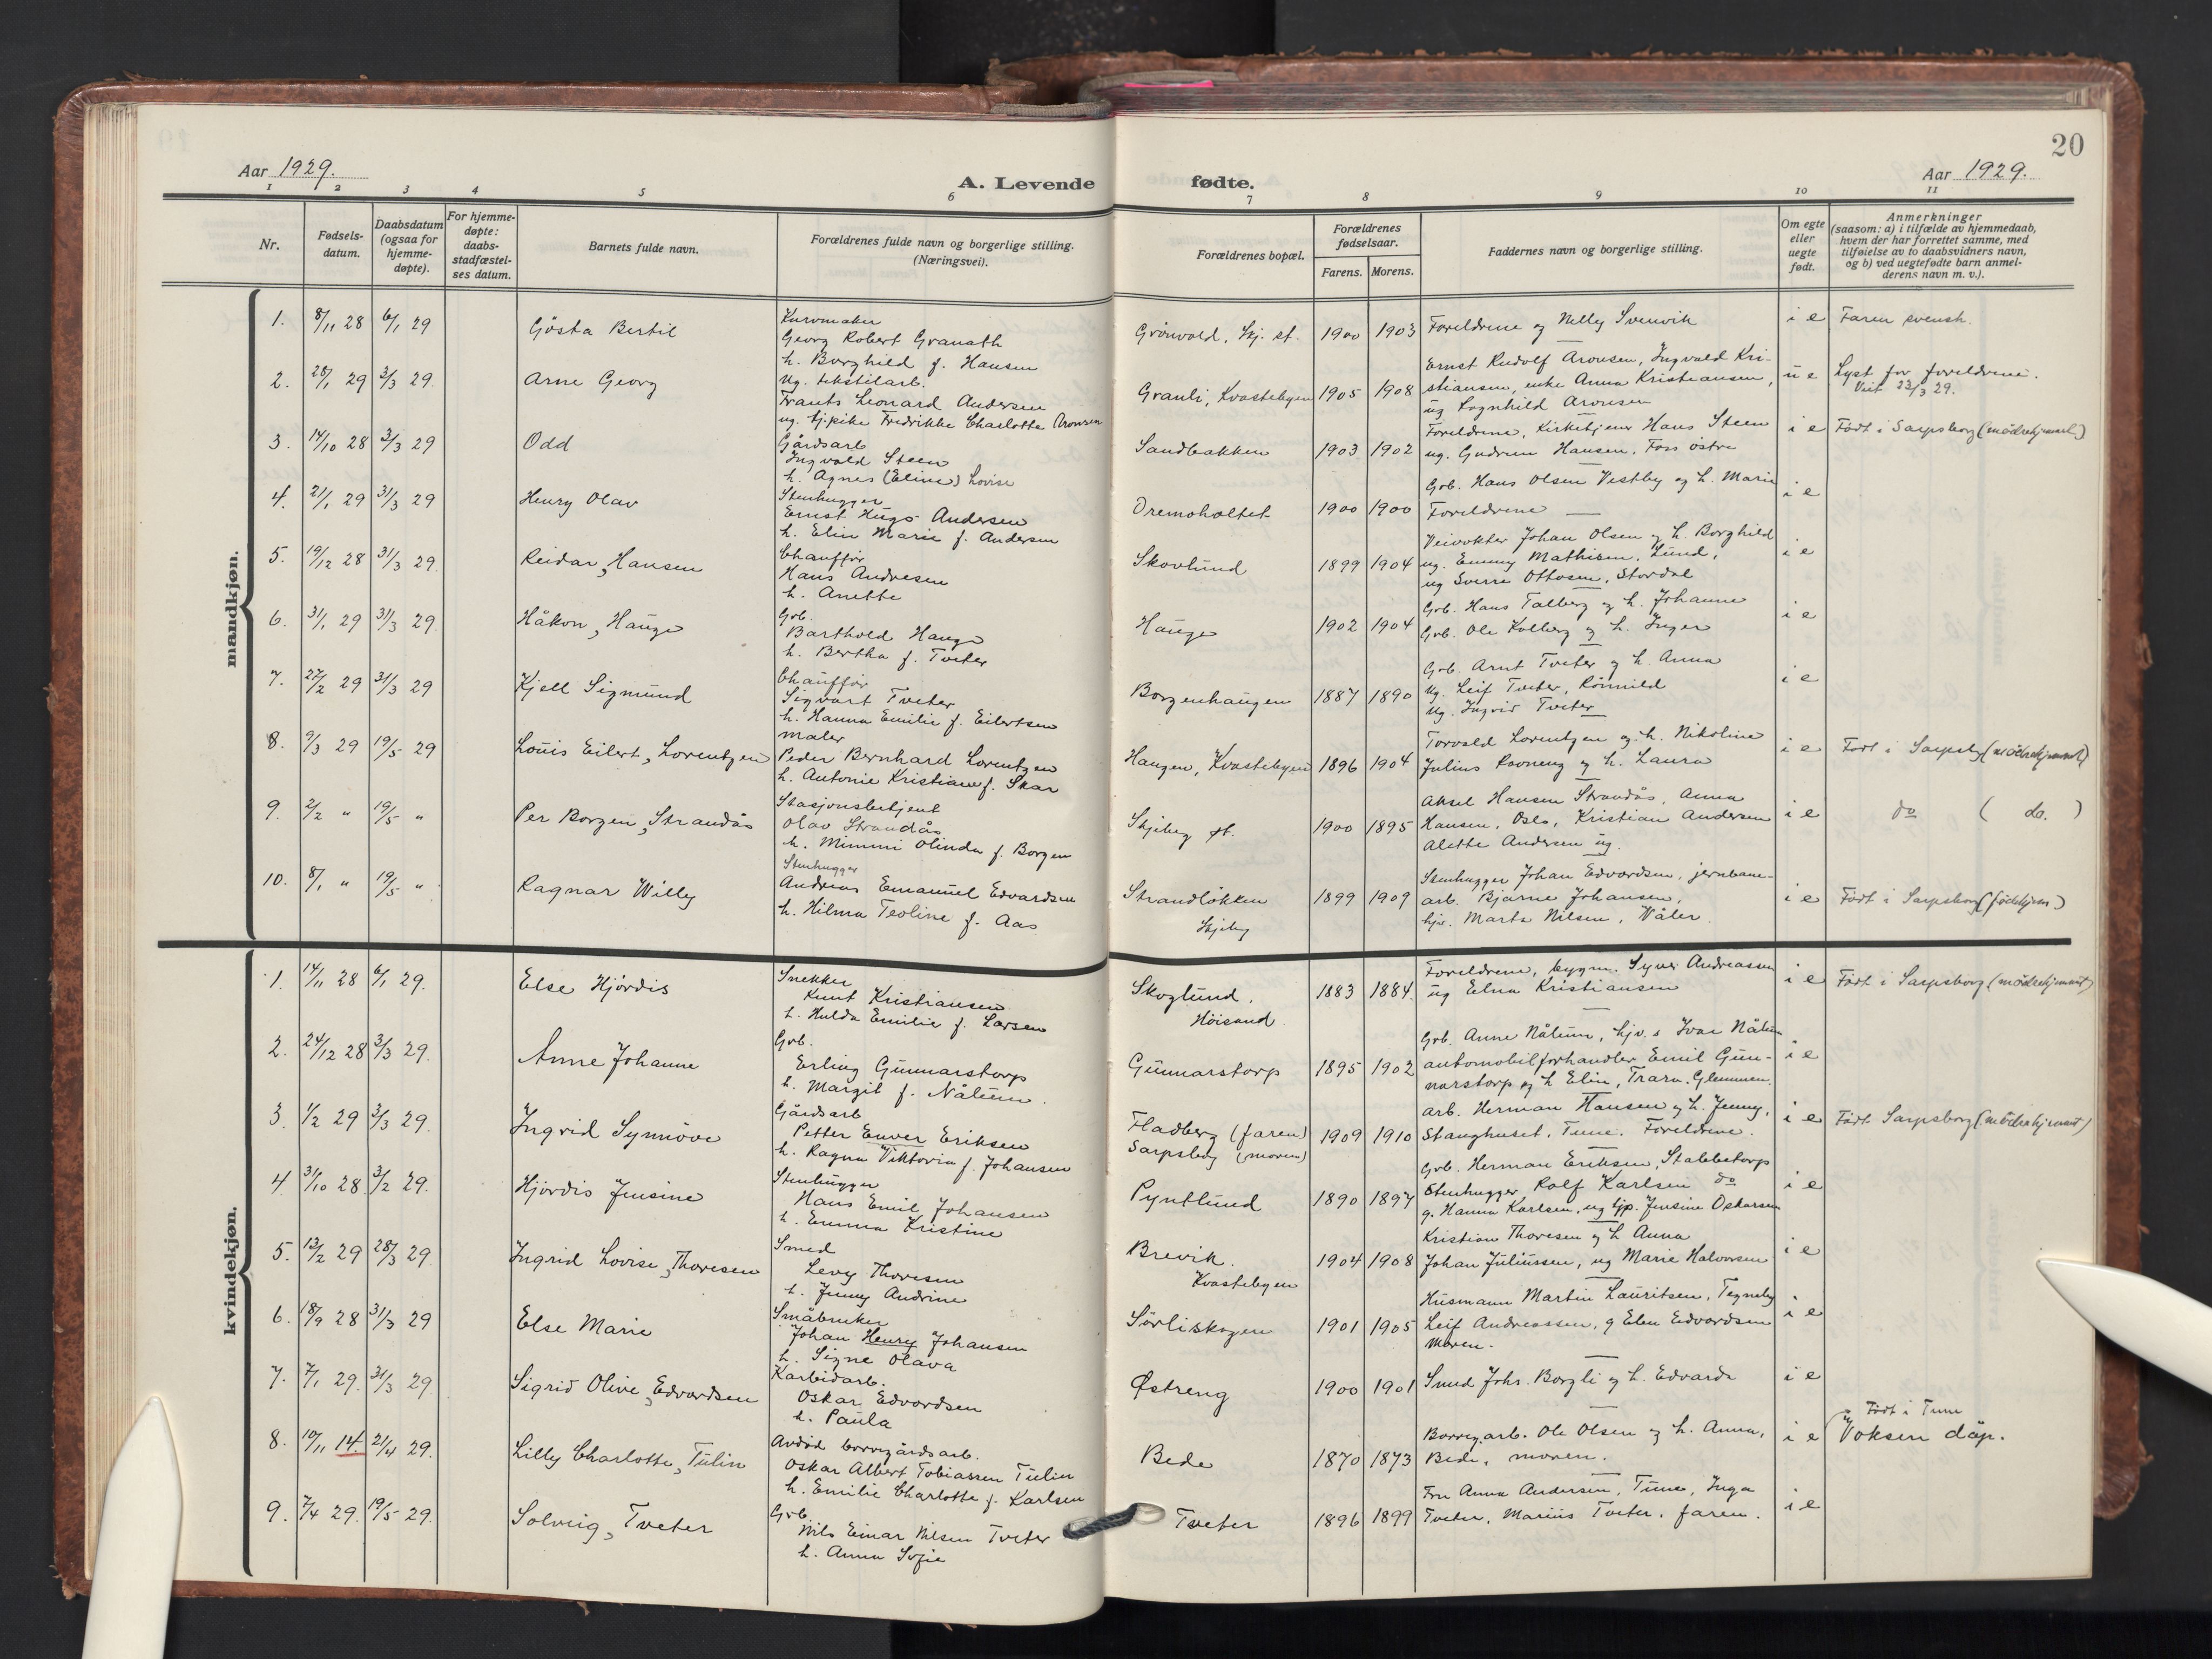 20
Aar 1929.
A. Levende fødte.
Aar 1929.
1 2 3 4 5 6 7 8 9 10 11
Nr.
Fødsels-
datum.
Daabsdatum
(ogsaa for
hjemme-
døpte).
For hjemme-
døpte:
daabs-
stadfæstel-
ses datum.
Barnets fulde navn.
Forældrenes fulde navn og borgerlige stilling.
(Næringsvei).
Forældrenes bopæl.
Forældrenes
fødselsaar.
Farens. Morens.
Faddernes navn og borgerlige stilling.
Om egte
eller
uegte
født.
Anmerkninger
(saasom: a) i tilfælde av hjemmedaab,
hvem der har forrettet samme, med
tilføielse av to daabsvidners navn,
og b) ved uegtefødte barn anmel-
derens navn m. v.).
mandkjøn.
1. 8/11 28 6/1 29 Gösta Bertil
Kurvmaker
Georg Robert Granath
h. Borghild f. Hansen
Grönvold, Skj. st. 1900 1903
Foreldrene og Nelly Svenvik
i e Faren svensk.
2. 28/1 29 3/3 29. Arne Georg
Ug. tekstilarb.
Frants Leonard Andersen
ug. tj.pike Fredrikke Charlotte Aronsen
Granli, Kvastebyen 1905 1908
Ernst Rudolf Aronsen, Ingvald Kri-
stiansen, enke Anna Kristiansen,
ug Ragnhild Aronsen
u e Lyst for foreldrene.
23/3 29.
3. 14/10 28 3/3 29 Odd
Gårdsarb
Ingvald Steen
h. Agnes (Eline) Lovise
Sandbakken 1903 1902
Foreldrene, Kirketjener Hans Steen
ug. Gudrun Hansen, Foss östre
i e Födt i Sarpsborg (mödrehjemmet)
4. 21/1 29 31/3 29 Henry Olav
Stenhugger
Ernst Hugo Andersen
h. Elin Marie f. Andersen
Oremoholtet 1900 1900
Grb. Hans Olsen Vestby og h. Marie
Foreldrene
i e
5. 19/12 28 31/3 29. Reidar, Hansen
Chaufför
Hans Andresen
h. Anette
Skovlund 1899 1904
Veivokter Johan Olsen og h. Borghild
ug. Emmy Mathisen, Lund,
ug Sverre Ottosen, Stordal
i e
6. 31/1 29 31/3 29. Håkon, Hauge
Grb.
Barthold Hauge
h. Bertha f. Tveter
Hauge 1902 1904
Grb. Hans Talberg og h. Johanne
Grb. Ole Kolberg og h. Inger
i e
7. 27/2 29 31/3 29 Kjell Sigmund
Chaufför
Sigvart Tveter
h. Hanna Emilie f. Eilertsen
Borgenhaugen 1887 1890
Grb. Arnt Tveter og h. Anna
Ug. Leif Tveter, Rönnild
Ug. Ingrid Tveter
i e
8. 9/3 29 19/5 29 Louis Eilert, Lorentzen
maler
Peder Bernhard Lorentzen
h. Antonie Kristiane f. Skar
Haugen, Kvastebyen 1896 1904
Torvald Lorentzen og h. Nikoline
Julius Ravneng og h. Laura
i e Födt i Sarpsbg (mödrehjemmet)
9. 2/2 " 19/5 " Per Borgen, Strandås
Stasjonsbetjent
Olav Strandås
h. Mimmi Olinda f. Borgen
Skjeberg st. 1900 1895
Aksel Hansen Strandås, Anna
Hansen, Oslo, Kristian Andersen
Alette Andersen ug.
i e do ( do. )
10. 8/1 " 19/5 " Ragnar Willy
Stenhugger
Andreas Emanuel Edvardsen
h. Hilma Teoline f. Aas
Strandlökken
Skjebg
1899 1909
Stenhugger Johan Edvardsen, jernbane-
arb. Bjarne Johansen,
hjv. Marta Nilsen, Våler.
i e Födt i Sarpsborg (födehjem)
kvindekjøn.
1. 14/11 28 6/1 29. Else Hjördis
Snekker
Knut Kristiansen
h. Hulda Emilie f. Larsen
Skoglund.
Höisand.
1883 1884.
Foreldrene, bygm. Syver Andreassen
ug Edna Kristiansen
i e Födt i Sarpsborg (mödrehjemmet)
2. 24/12 28 3/3 29. Anne Johanne
Grb.
Erling Gunnarstorp
h. Margit f. Nålum.
Gunnarstorp 1895 1902
Grb. Anne Nålum, hjv. s Ivar Nålum
automobilforhandler Emil Gun-
narstorp og h Elin, Trara. Glemmen.
i e
3. 1/2 29 3/3 29. Ingrid Synnöve
Gårdsarb
Petter Enver Eriksen
h. Ragna Viktoria f. Johansen
Hadberg (faren)
Sarpsborg (moren)
1909 1910
arb. Herman Hansen og h. Jenny,
Stanghuset, Tune. Foreldrene.
i e Födt Sarpsborg (mödrehjemmet)
4. 31/10 28. 3/2 29. Hjördis Jensine
Stenhugger
Hans Emil Johansen
h. Emma Kristine
Pyntlund 1890 1897
Grb. Herman Eriksen, Stabbetorp
Stenhugger Rolf Karlsen do
g. Hanna Karlsen, ug tjp. Jensine Oskarsen
i e
5. 13/2 29 28/3 29. Ingrid Lovise, Thoresen
Smed
Levy Thoresen
h. Jenny Andrine
Brevik.
Kvastebyen
1904 1908
Kristian Thoresen og h Anna
Johan Juliussen, ug Marie Halvorsen
i e
6. 18/9 28 31/3 29 Else Marie
Småbruker
Johan Henry Johansen
h. Signe Olava
Sörliskogen 1901 1905
Husmann Martin Lauritsen, Tegneby
Leif Andreassen, g Elen Edvardsen
Moren.
i e
7. 7/1 29. 31/3 29 Sigrid Olive, Edvardsen
Karbidarb.
Oskar Edvardsen
h. Paula
Østreng 1900 1901
Smed Johs. Borgli og h. Edvarda
i e
8. 10/11 14. 21/4 29. Lilly Charlotte, Tulin
Avdöd borregårdsarb.
Oskar Albert Tobiassen Tulin
h. Emilie Charlotte f. Karlsen
Bede 1870 1873
Borreg.arb. Ole Olsen og h. Anna,
Bede, moren.
i e Födt i Tune
Voksen dåp.
9. 7/4 29. 19/5 29. Solveig, Tveter
Grb.
Nils Einar Nilsen Tveter
h. Anna Sofie
Tveter 1896 1899
Fru Anna Andersen, Tune, Inga
Tveter, Marius Tveter, faren.
i e